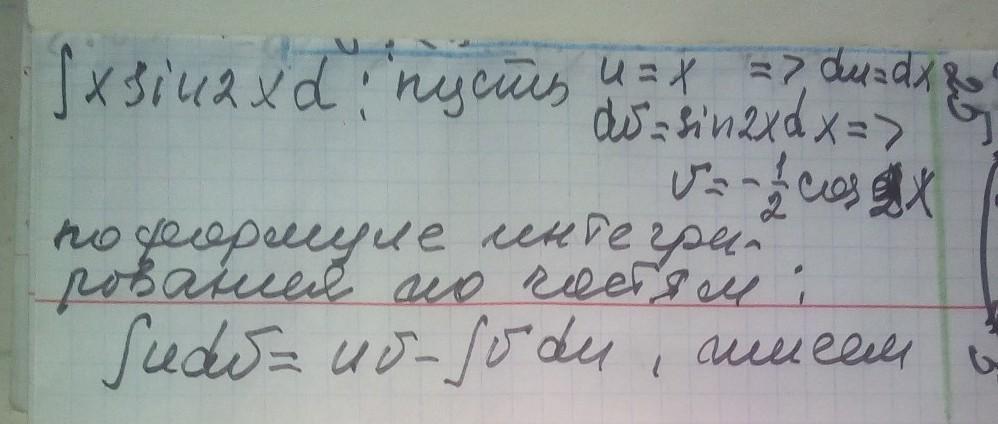 ∫x sin2xd : пусть u = x => du=dx
dv = sin2xdx =>
v = -1/2 cos 2x
по формуле интегри-
рования по частям :
∫udv = uv - ∫v du , имеем